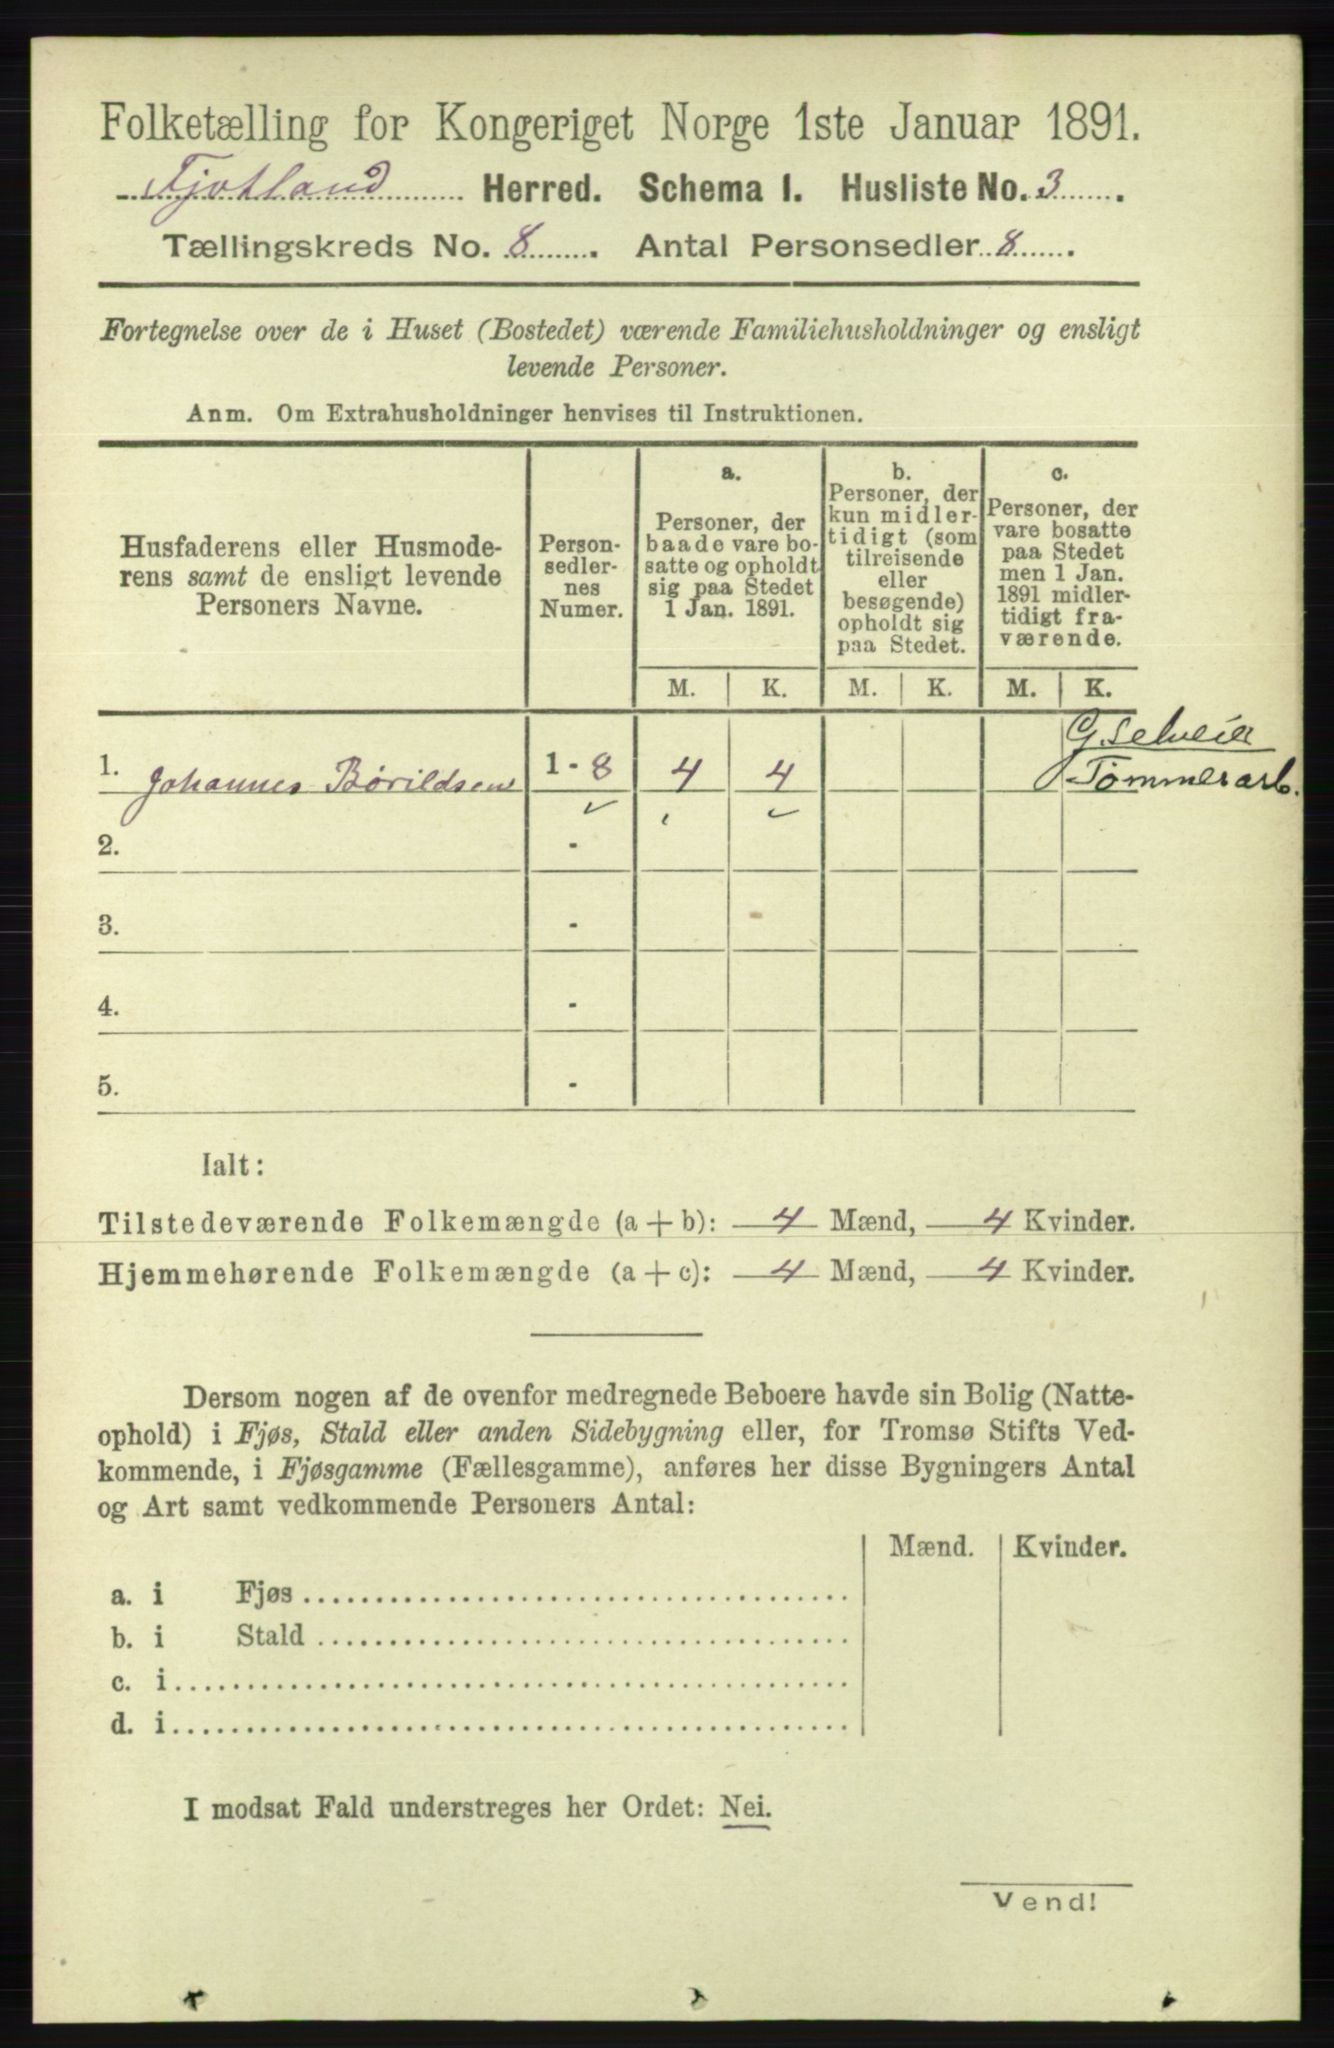 Folketælling for Kongeriget Norge 1ste Januar 1891.
Fjotland Herred. Schema 1. Husliste No. 3.
Tællingskreds No. 8. Antal Personsedler 8.
Fortegnelse over de i Huset (Bostedet) værende Familiehusholdninger og ensligt
levende Personer.
Anm. Om Extrahusholdninger henvises til Instruktionen.
Husfaderens eller Husmode-
rens samt de ensligt levende
Personers Navne.
Person-
sedler-
nes
Numer.
a.
Personer, der
baade vare bo-
satte og opholdt
sig paa Stedet
1 Jan. 1891.
b.
Personer, der
kun midler-
tidigt (som
tilreisende
eller
besøgende)
opholdt sig
paa Stedet.
c.
Personer, der
vare bosatte
paa Stedet
men 1 Jan.
1891 midler-
tidigt fra-
værende.
M. K. M. K. M. K.
G. Selveier
1. Johannes Børildsen 1 - 8 4 4 Tømmerarb.
2. -
3. -
4. -
5. -
Ialt:
Tilstedeværende Folkemængde (a + b): 4 Mænd, 4 Kvinder.
Hjemmehørende Folkemængde (a + c): 4 Mænd, 4 Kvinder.
Dersom nogen af de ovenfor medregnede Beboere havde sin Bolig (Natte-
ophold) i Fjøs, Stald eller anden Sidebygning eller, for Tromsø Stifts Ved-
kommende, i Fjøsgamme (Fællesgamme), anføres her disse Bygningers Antal
og Art samt vedkommende Personers Antal:
Mænd. Kvinder.
a. i Fjøs
b. i Stald
c. i
d. i
I modsat Fald understreges her Ordet: Nei.
Vend!